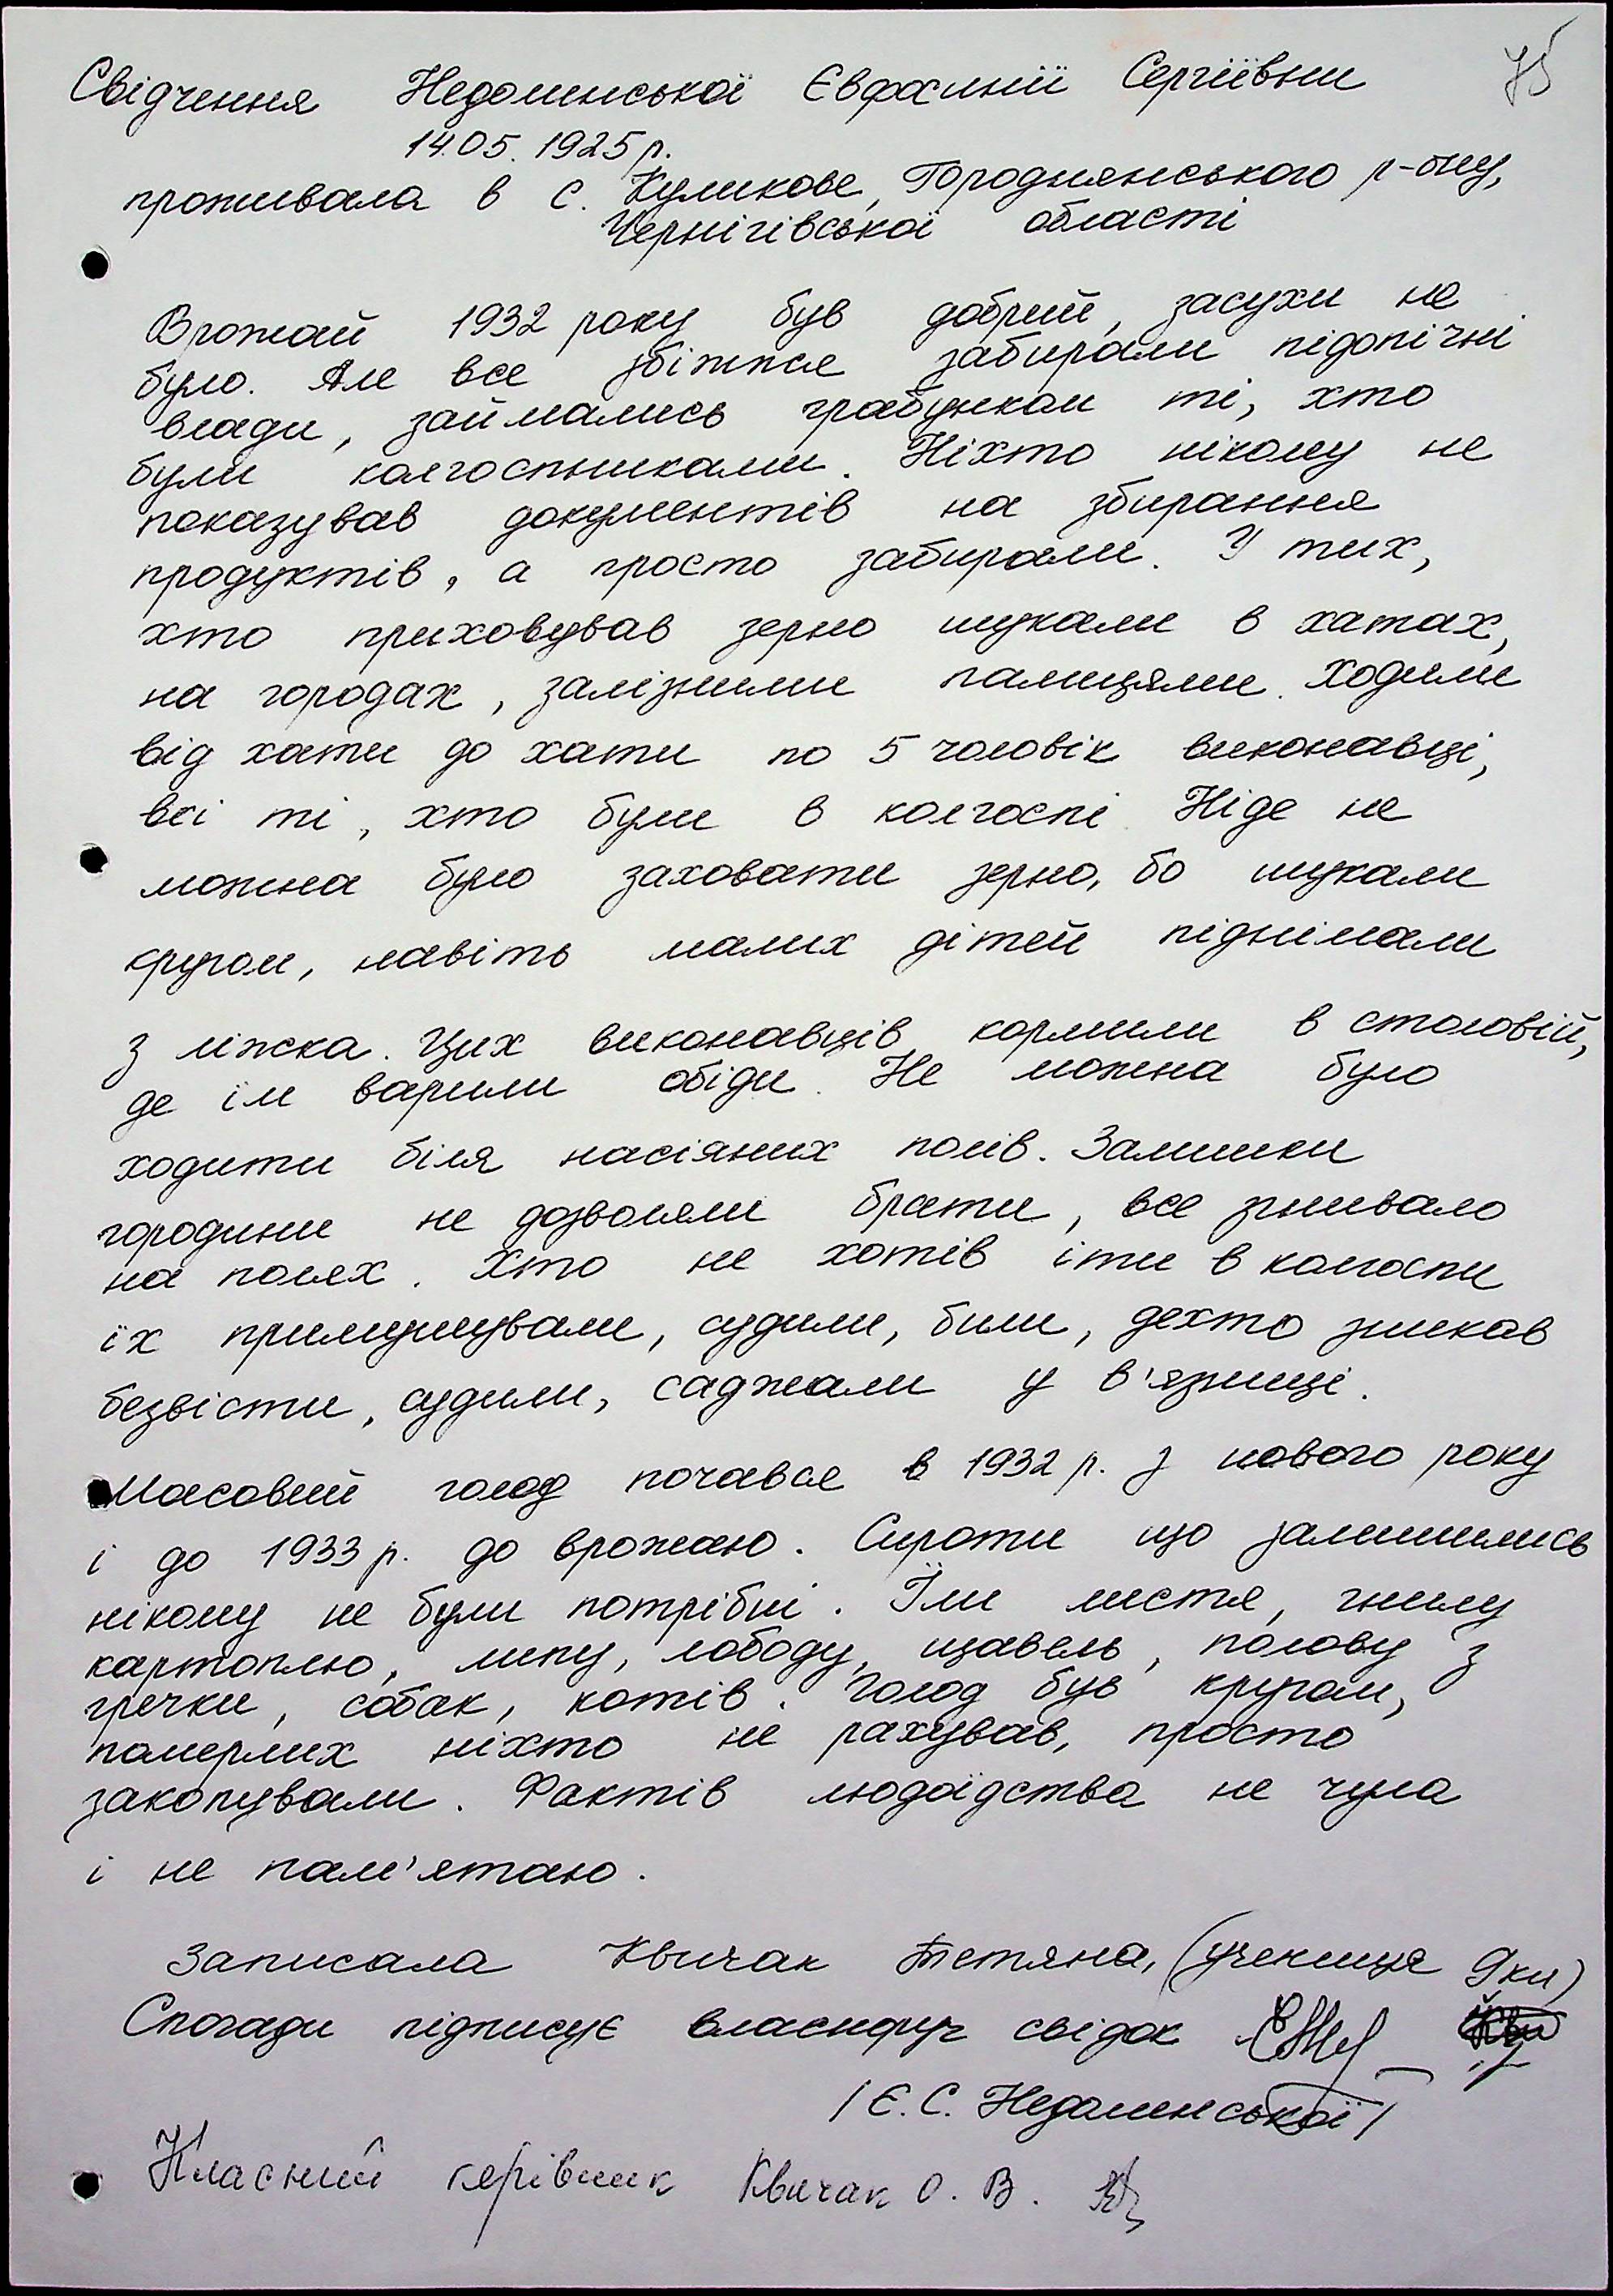 75
Свідчення Недоминської Євфамнії Сергіївни
14.05.1925 р.
проживала в с. Куликове, Городнянського р-ону,
Чернігівської області
Врожай 1932 року був добрий, засухи не
було. Але все збіжжя забирали підопічні
влади, займались грабунком ті, хто
були колгоспниками. Ніхто нікому не
показував документів на збирання
продуктів, а просто забирали. У тих,
хто приховував зерно шукали в хатах,
на городах, залізними палицями. Ходили
від хати до хати по 5 чоловік виконавці,
всі ті, хто були в колгоспі. Ніде не
можна було заховати зерно, бо шукали
кругом, навіть малих дітей піднімали
з ліжка. Цих виконавців кормили в столовій,
де їм варили обіди. Не можна було
ходити біля насіяних полів. Залишки
городини не дозволяли брати, все гнивало
на полях. Хто не хотів іти в колгоспи
їх примушували, судили, били, дехто зникав
безвісти, судили, саджали у в'язниці.
Масовий голод почався в 1932 р. з нового року
і до 1933 р. до врожаю. Сироти що залишились
нікому не були потрібні. Їли листя, гнилу
картоплю, липу, лободу, щавель, полову з
гречки, собак, котів. Голод був кругом,
померлих ніхто не рахував, просто
закопували. Фактів людоїдства не чула
і не пам'ятаю.
Записала Квичак Тетяна, (учениця 9 кл)
Спогади підписує власноруч свідок
/ Є. С. Недоминської /
Класний керівник Квичак О. В.